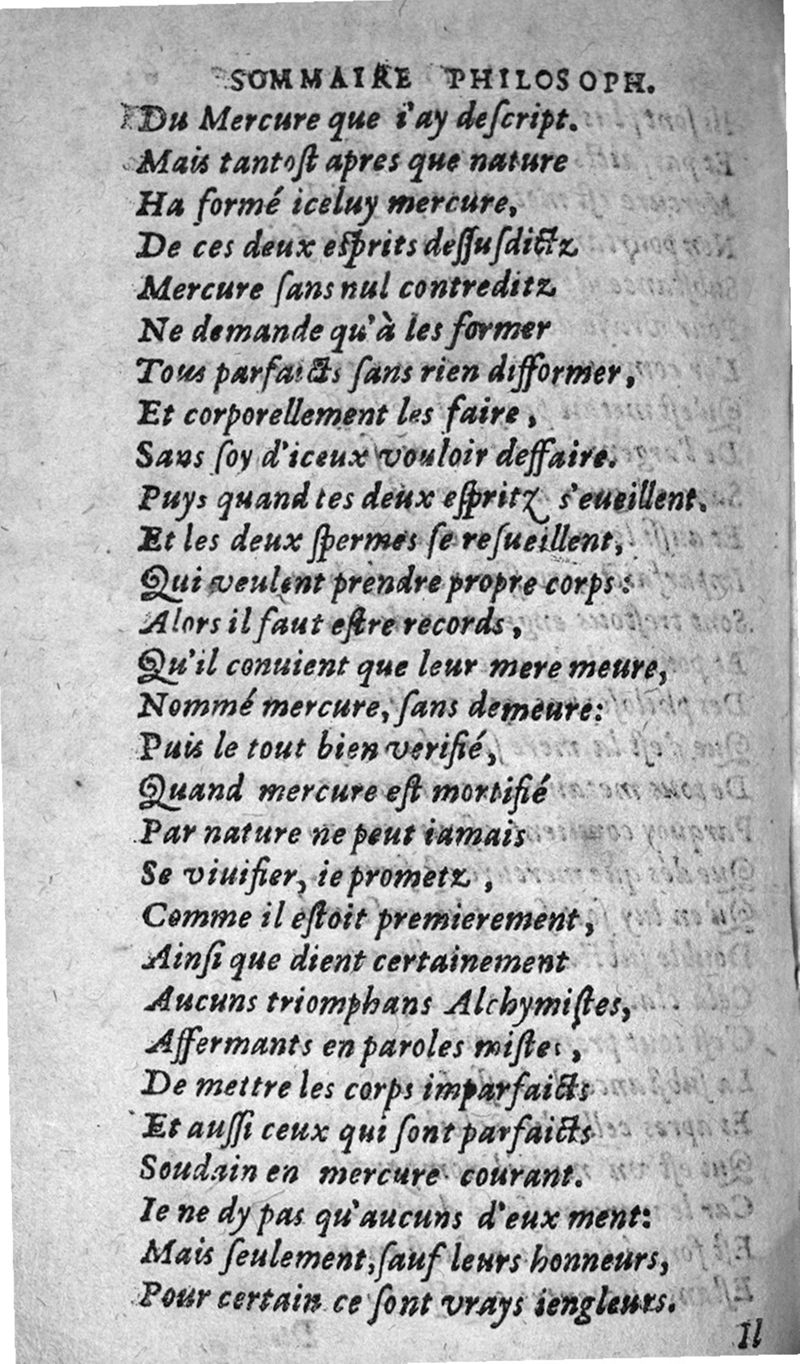 SOMMAIRE PHILOSOPH.
Du Mercure que i'ay deſcript.
Mais tantoſt apres que nature
Ha formé iceluy mercure,
De ces deux eſprits deſſuſdictz
Mercure ſans nul contreditz
Ne demande qu'à les former
Tous parfaicts ſans rien difformer,
Et corporellement les faire,
Sans ſoy d'iceux vouloir deffaire.
Puys quand tes deux eſpritz s'eueillent.
Et les deux ſpermes ſe reſueillent,
Qui veulent prendre propre corps:
Alors il faut eſtre records,
Qu'il conuient que leur mere meure,
Nommé mercure, ſans demeure:
Puis le tout bien verifié,
Quand mercure eſt mortifié
Par nature ne peut iamais
Se viuifier, ie prometz,
Comme il eſtoit premierement,
Ainſi que dient certainement
Aucuns triomphans Alchymiſtes,
Affermants en paroles miſtes,
De mettre les corps imparfaicts
Et auſſi ceux qui ſont parfaicts
Soudain en mercure courant.
Ie ne dy pas qu'aucuns d'eux ment:
Mais ſeulement, ſauf leurs honneurs,
Pour certain ce ſont vrays iengleurs.
Il